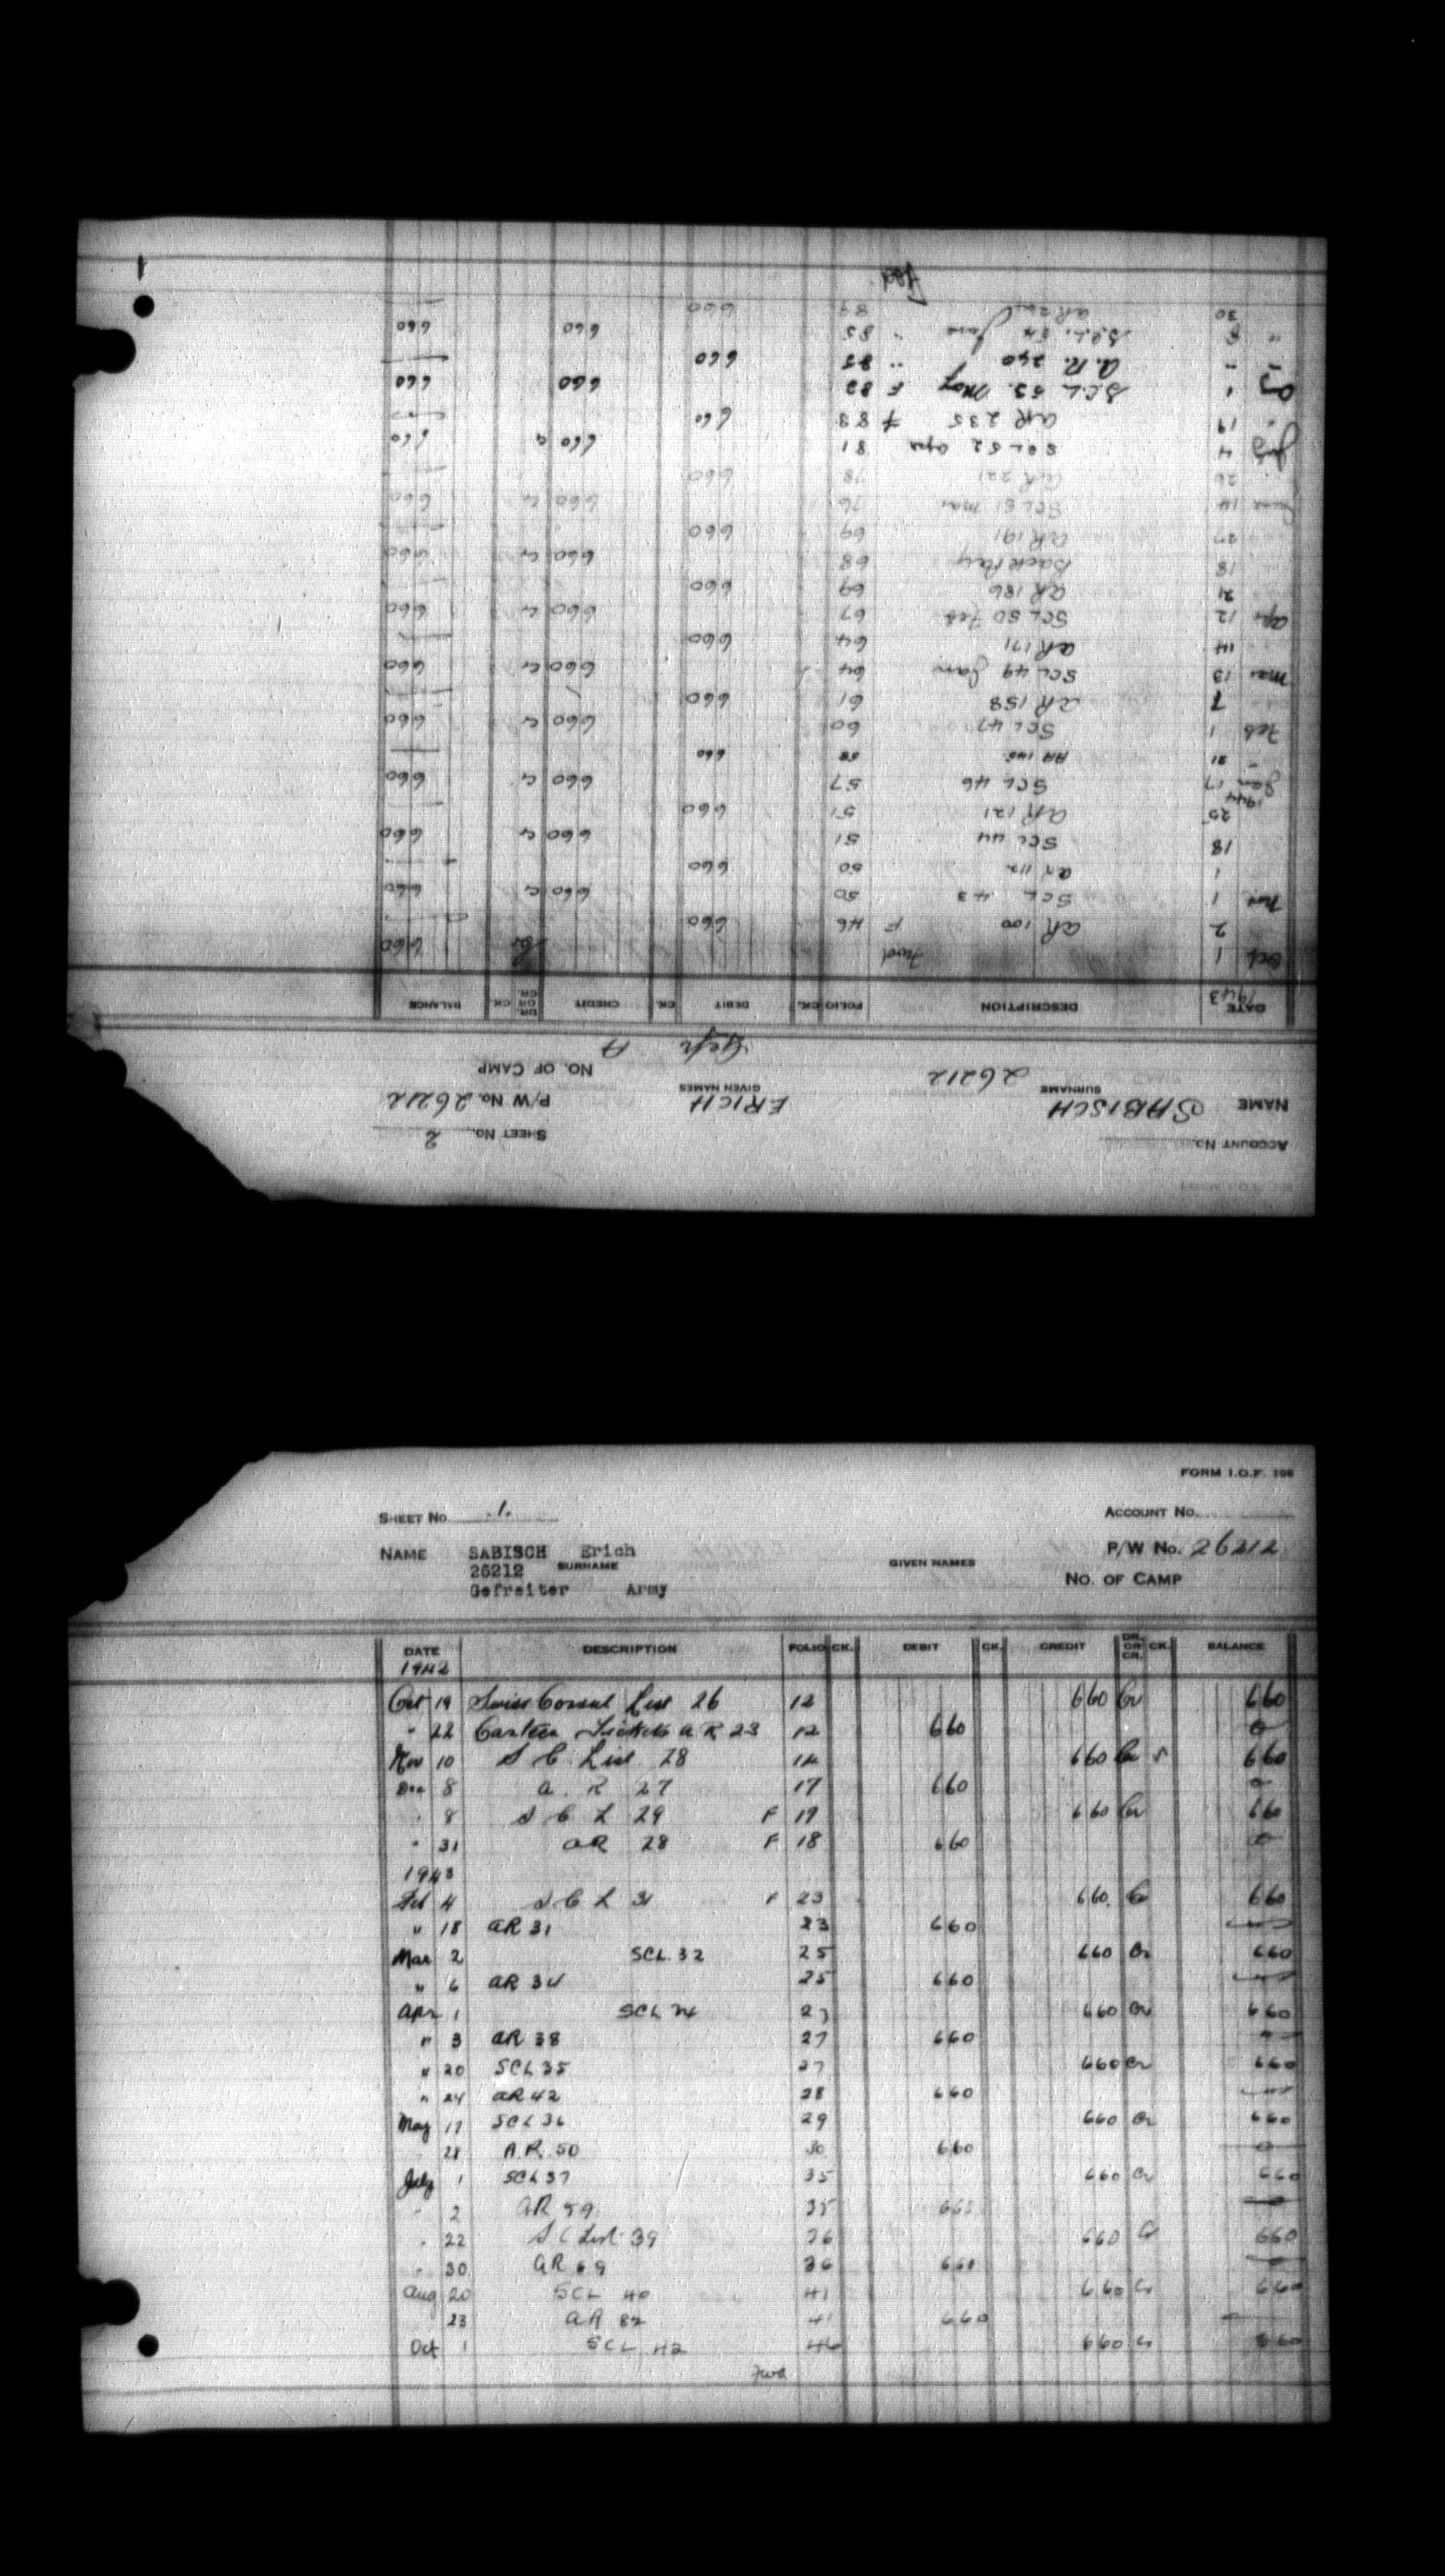 FORM I.O.F. 106
SHEET No. 1. ACCOUNT No.
NAME SABISCH Erich P/W No. 26212
SURNAME GIVEN NAMES
26212 NO. OF CAMP
Gefreiter Army
DATE DESCRIPTION FOLIO CK. DEBIT CK. CREDIT DR. OR CR. CK. BALANCE
1942
Oct 19 Swiss Consul List 26 12 660 Cr 660
" 22 Canteen Tickets A R 23 12 660 0
Nov 10 S C List 28 14 660 Cr 660
Dec 8 A. R 27 17 660 0
" 8 S C L 29 F 17 660 Cr 660
" 31 AR 28 F 18 660 0
1943
Feb 4 S C L 31 F 23 660 Cr 660
" 18 AR 31 23 660
Mar 2 SCL 32 25 660 Cr 660
" 6 AR 34 25 660
Apr 1 SCL 34 27 660 Cr 660
" 3 AR 38 27 660
" 20 SCL 35 27 660 Cr 660
" 24 AR 42 28 660
May 17 SCL 36 29 660 Cr 660
28 A.R. 50 30 660 0
July 1 SCL 37 35 660 Cr 660
" 2 AR 59 35 660
" 22 S C List 39 36 660 Cr 660
" 30 AR 69 36 660
Aug 20 SCL 40 41 660 Cr 660
23 AR 82 41 660
Oct 1 SCL 42 46 660 Cr 660
Fwd
ACCOUNT No. SHEET No. 2
NAME SABISCH ERICH P/W No. 26212
SURNAME GIVEN NAMES
26212 Gefr A NO. OF CAMP
DATE DESCRIPTION FOLIO CK. DEBIT CK. CREDIT DR. OR CR. CK. BALANCE
1943
Oct 1 Fwd Cr 660
2 AR 100 F 46 660
Nov 1 SCL 43 50 660 Cr 660
1 AR 112 50 660
18 SCL 44 51 660 Cr 660
25 AR 121 51 660
1944
Jan 17 SCL 46 57 660 Cr 660
" 21 AR 145 58 660
Feb 1 SCL 47 60 660 Cr 660
7 AR 158 61 660
Mar 13 SCL 49 Jan 64 660 Cr 660
14 AR 171 64 660
Apr 12 SCL 50 Feb 67 660 Cr 660
21 AR 186 69 660
18 Back Pay 68 660 Cr 660
27 AR 191 69 660
June 14 SCL 51 Mar 76 660 Cr 660
26 AR 221 78 660
July 4 SCL 52 Apr 81 660 Cr 660
" 19 AR 235 F 83 660
1 S.C.L 53. May F 83 660 660
" " A.R. 240 " 85 660
" 8 S.C.L. 54 June " 85 660 660
30 89 660
Fwd